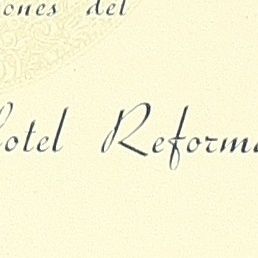 ones del
otel Reforma